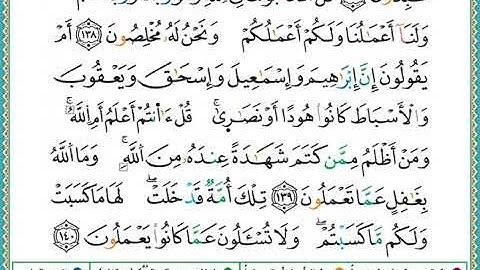 وَلَنَآ أَعْمَـٰلُنَا وَلَكُمْ أَعْمَـٰلُكُمْ وَنَحْنُ لَهُۥ مُخْلِصُونَ ١٣٨ أَمْ
يَقُولُونَ إِنَّ إِبْرَٰهِـۧمَ وَإِسْمَـٰعِيلَ وَإِسْحَـٰقَ وَيَعْقُوبَ
وَٱلْأَسْبَاطَ كَانُوا۟ هُودًا أَوْ نَصَـٰرَىٰ ۗ قُلْ ءَأَنتُمْ أَعْلَمُ أَمِ ٱللَّهُ ۗ
وَمَنْ أَظْلَمُ مِمَّن كَتَمَ شَهَـٰدَةً عِندَهُۥ مِنَ ٱللَّهِ ۗ وَمَا ٱللَّهُ
بِغَـٰفِلٍ عَمَّا تَعْمَلُونَ ١٣٩ تِلْكَ أُمَّةٌ قَدْ خَلَتْ ۖ لَهَا مَا كَسَبَتْ
وَلَكُم مَّا كَسَبْتُمْ ۖ وَلَا تُسْـَٔلُونَ عَمَّا كَانُوا۟ يَعْمَلُونَ ١٤٠